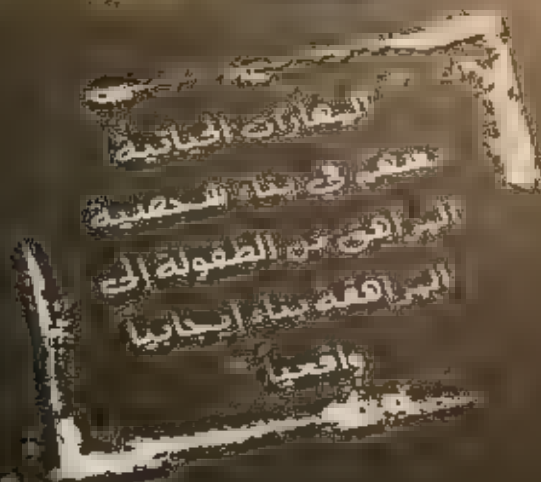 المهارات الحياتية
تنمي في بناء شخصية
المراهق من الطفولة إلى
المراهقة بناء إيجابيا